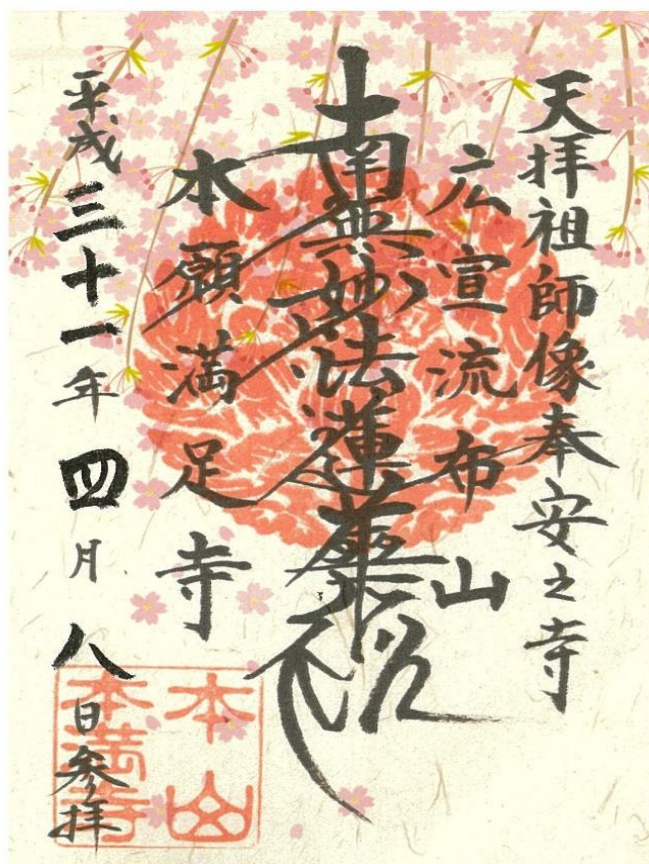 天拝祖師像奉安之寺
広宣流布山
南無妙法蓮華経
本願満足寺
平成三十一年四月八日参拝
本山
本満寺